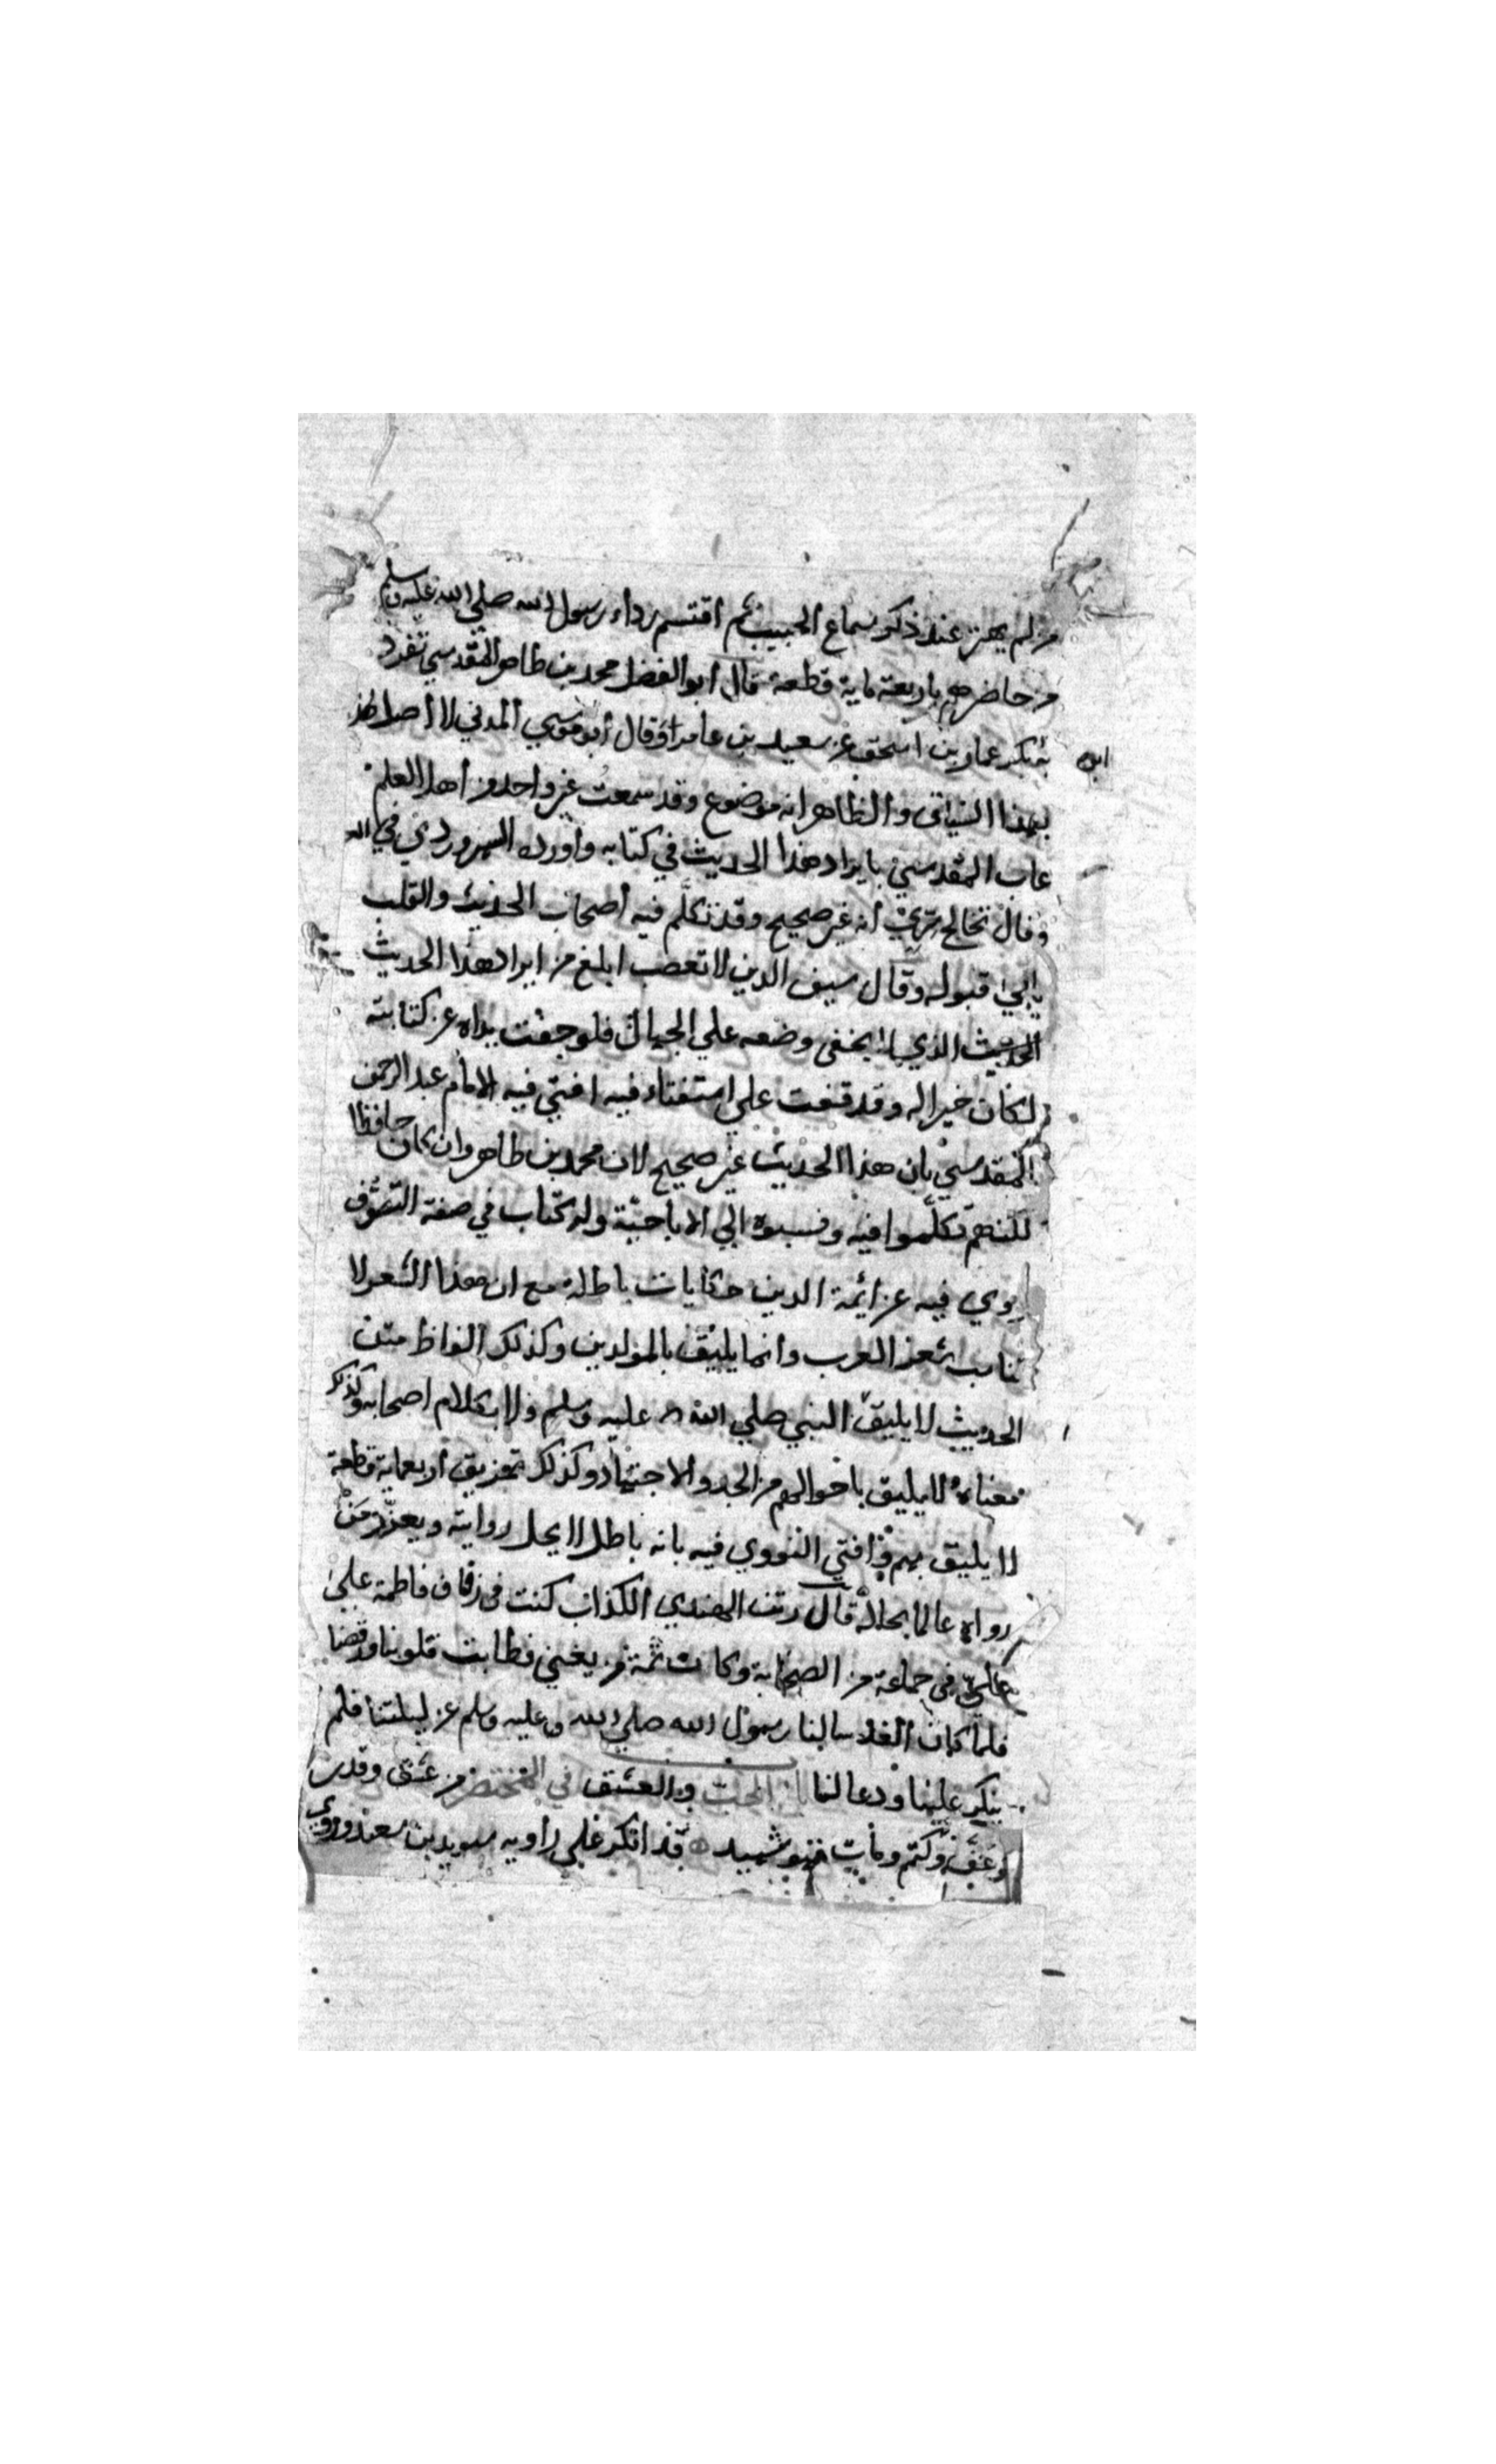 من لم يهتز عند ذكر سماع الحبيب ثم اقتسم رداء رسول الله صلي الله عليه وسلم
من حاضرهم باربعة ماية قطعة قال أبو الفضل محمد بن طاهر المقدسي تفرد
به بكر عمار بن اسحق عن سعيد بن عامر وقال أبو موسي المدني لا أصل
ابو
بهذا السياق والظاهر انه موضوع وقد سمعت غير واحد من أهل العلم
عاب المقدسي بايراد هذا الحديث في كتابه وأورده السهروردي في
وقال تخالج سري أنه غير صحيح وقد تكلم فيه أصحاب الحديث والقلب
يابي قبوله وقال سيف الدين لا تعصب ابلغ من ايراد هذا الحديث
الحديث الذي لا يخفى وضعه علي الجهال فلو جفت يداه عن كتابته
لكان خيرا له وقد وقفت علي استفتاء فيه افتي فيه الامام عبد الرحمن
المقدسي بان هذا الحديث غير صحيح لان محمد بن طاهر وان كان حافظا
لكنهم تكلموا فيه ونسبوه الي الاباحية وله كتاب في صفة التصوف
يروي فيه عن ائمة الدين حكايات باطلة مع ان هذا الشعر لا
يناسب شعر العرب وانما يليق بالمولدين وكذلك الفاظ متن
الحديث لا يليق النبي صلي الله عليه وسلم ولا بكلام اصحابه وكذلك
معناه لا يليق باحوالهم من الجد والاجتهاد وكذلك تمزيق أربعماية قطعة
لا يليق بهم وافتي النووي فيه بانه باطل لا يحل روايته ويعزر من
رواه عالما بحاله قال رتن الهندي الكذاب كنت في زفاف فاطمة علي
علي في جماعة من الصحابة وكان ثمة من يغني فطابت قلوبنا ورقصنا
فلما كان الغد سالنا رسول الله صلي الله عليه وسلم عن ليلتنا فلم
ينكر علينا ودعا لنا باب الحب والعشق في المختصر من عشق وقدر
وعف وكتم ومات فهو شهيد قد انكر علي راويه سويد بن سعيد وروي